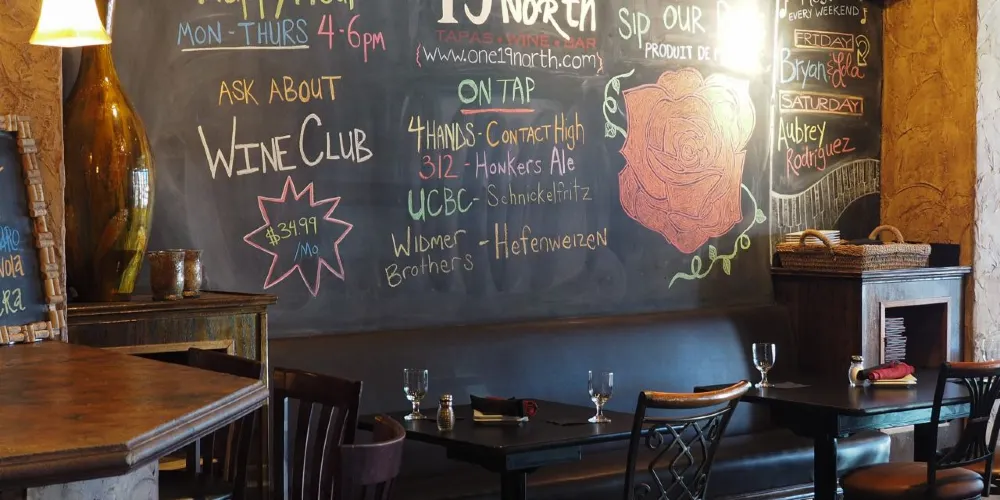 Happy Hour
MON - THURS 4-6pm
ASK ABOUT
WINE CLUB
$34.99
/MO
19 NORTH
TAPAS • WINE • BAR
{www.one19north.com}
ON TAP
4HANDS - CONTACT HIGH
312 - HONKERS ALE
UCBC - SCHNICKELFRITZ
WIDMER BROTHERS - HEFENWEIZEN
SIP OUR
PRODUIT DE
EVERY WEEKEND
FRIDAY
Bryan & Lola
SATURDAY
Aubrey
Rodriguez